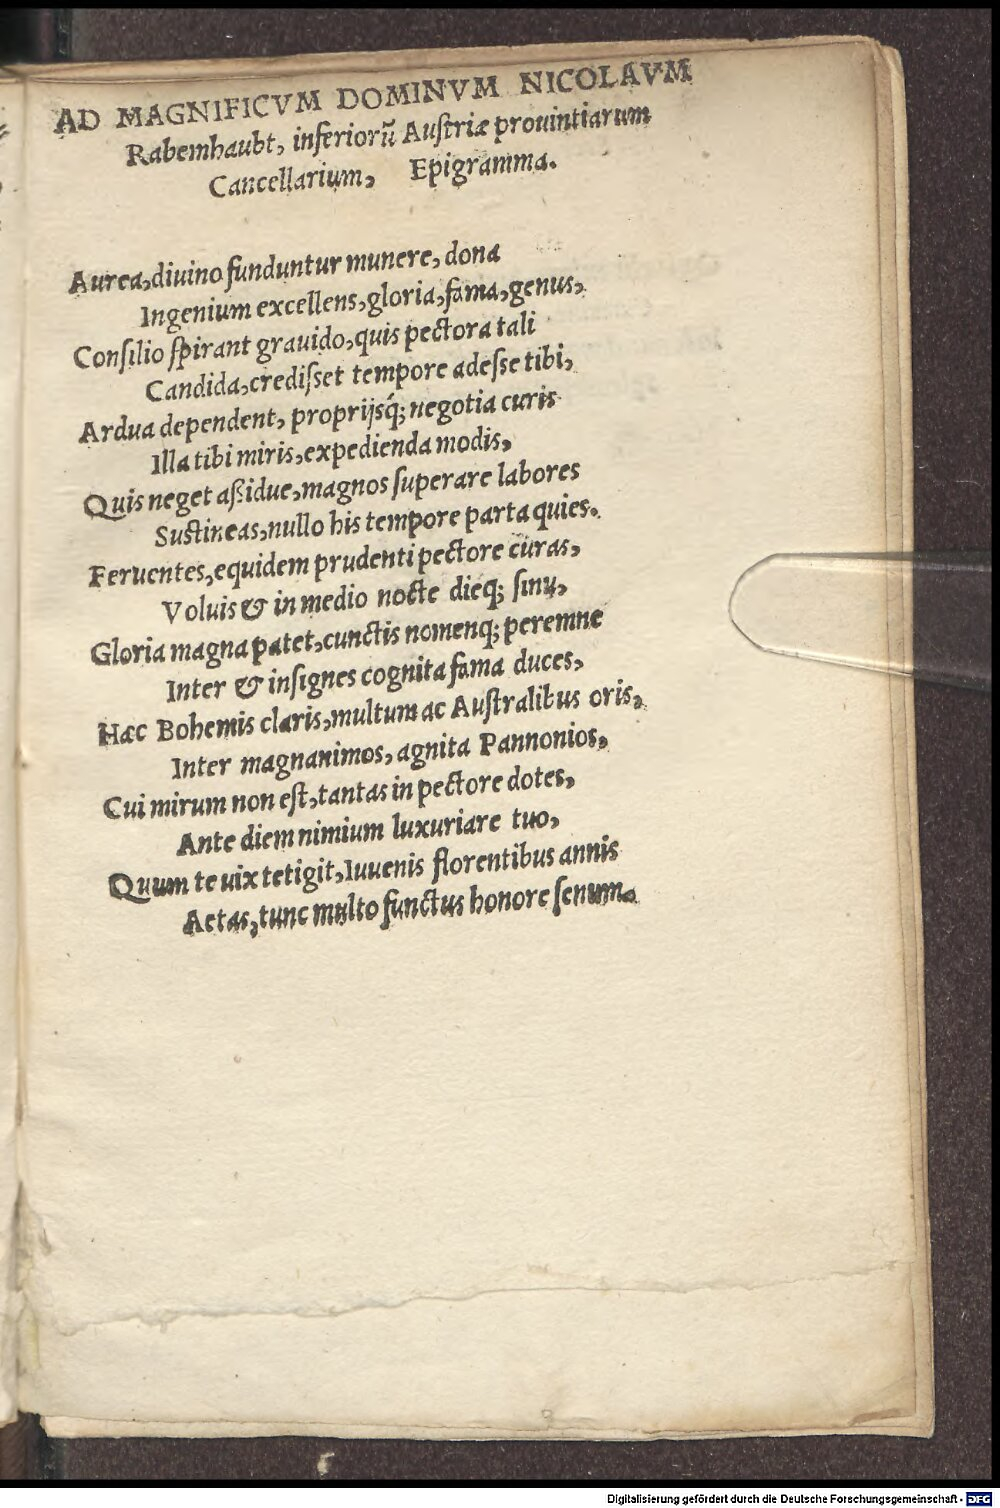 AD MAGNIFICVM DOMINVM NICOLAVM
Rabemhaubt, inferiorū Auſtriæ prouintiarum
Cancellarium, Epigramma.
Aurea, diuino funduntur munere, dona
Ingenium excellens, gloria, fama, genus,
Conſilio ſpirant grauido, quis pectora tali
Candida, crediſset tempore adeſse tibi,
Ardua dependent, proprijsq́; negotia curis
Illa tibi miris, expedienda modis,
Quis neget aßidue, magnos ſuperare labores
Suſtineas, nullo his tempore parta quies.
Feruentes, equidem prudenti pectore curas,
Voluis & in medio nocte dieq; ſinu,
Gloria magna patet, cunctis nomenq; peremne
Inter & inſignes cognita fama duces,
Hæc Bohemis claris, multum ac Auſtralibus oris,
Inter magnanimos, agnita Pannonios,
Cui mirum non eſt, tantas in pectore dotes,
Ante diem nimium luxuriare tuo,
Quum te uix tetigit, Iuuenis florentibus annis
Aetas, tunc multo functus honore ſenum.
Digitalisierung gefördert durch die Deutsche Forschungsgemeinschaft - DFG